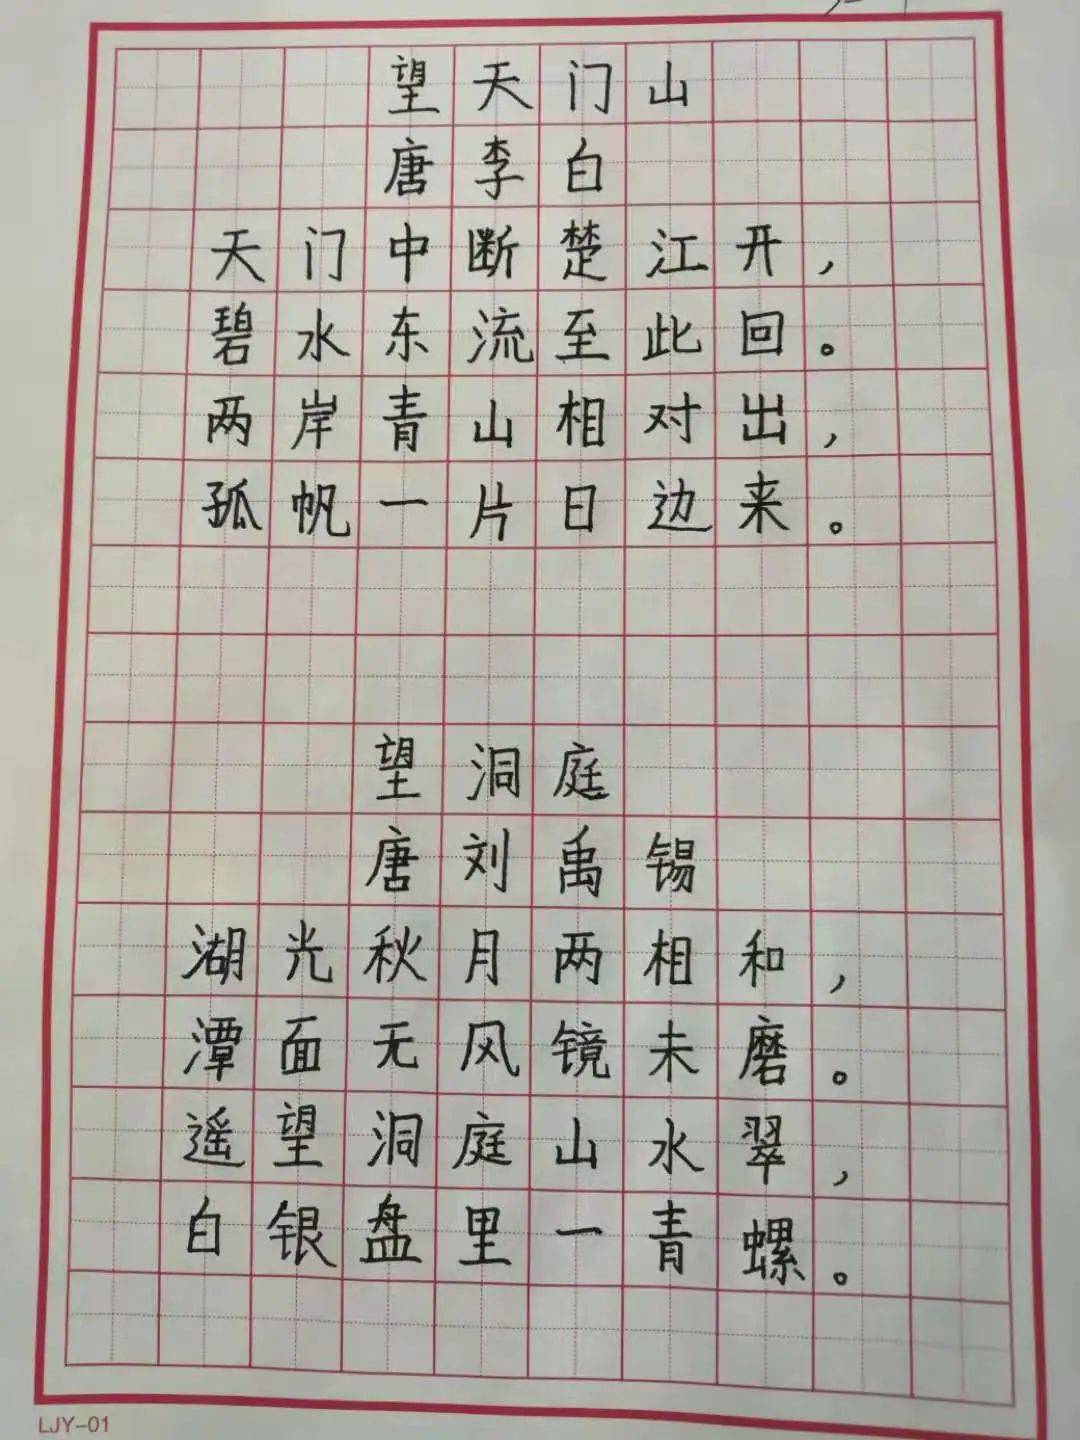 望天门山
唐李白
天门中断楚江开，
碧水东流至此回。
两岸青山相对出，
孤帆一片日边来。
望洞庭
唐刘禹锡
湖光秋月两相和，
潭面无风镜未磨。
遥望洞庭山水翠，
白银盘里一青螺。
LJY-01